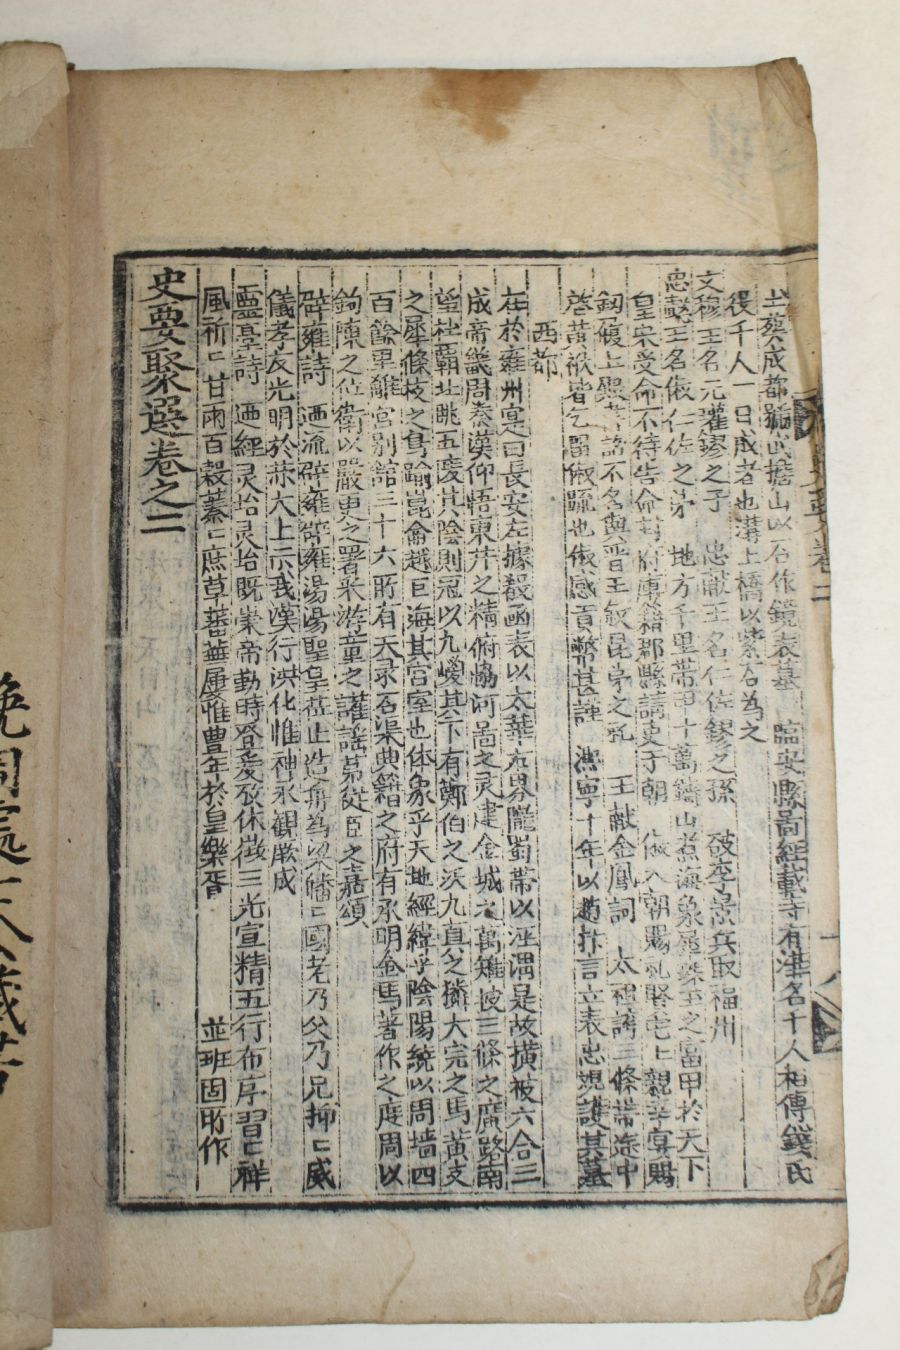 土葬成都號武擔山以石作鏡表墓 臨安縣啚經載寺有浮名千人相傳錢氏
役千人一日成者也溝上橋以紫石為之
文穆王名元瓘鏐之子 忠獻王名仁佐鏐之孫 破李景兵取福州
忠懿王名俶仁佐之弟 地方千里帶甲十萬鑄山煮海象犀珠玉之富甲於天下
皇宋受命不待告命封府庫籍郡縣請吏于朝 俶入朝賜禮賢宅上親幸宴賜
釰履上殿書詔不名與晉王叙昆弟之礼 王献金鳳詞 太祖誇三條帶途中
啓黃袱皆乞留俶䟽也俶感貢幣甚謹 凞寧十年以趙抃言立表忠觀護其墓
西都
在於雍州寔曰長安左據殽函表以太華右界隴蜀帶以涇渭是故橫被六合三
成帝畿周秦漢仰悟東井之精俯協河啚之灵建金城之萬雉披三條之廣路南
望杜霸北眺五陵其陰則冠以九嵕其下有鄭伯之沃九真之獜大宛之馬黃支
之犀條枝之鳥踰崑侖越巨海其宫室也体象乎天地經緯乎陰陽繞以周墻四
百餘里離宮別舘三十六所有天彔石渠典籍之府有承明金馬著作之庭周以
鉤陳之位衛以嚴更之署采游童之讙謠第從臣之嘉頌
辟雍詩 迺流辟雍辟雍湯湯聖皇莅止造舟為梁皤〻國老乃父乃兄抑〻威
儀孝友光明於赫大上示我漢行洪化惟神永觀厥成
靈臺詩 迺經灵坮灵坮既崇帝勤時登爰攷休徵三光宣精五行布序習〻祥
風祈〻甘雨百穀蓁〻庶草蕃蕪屢惟豊年於皇樂胥 並班固所作
史要聚選卷之二